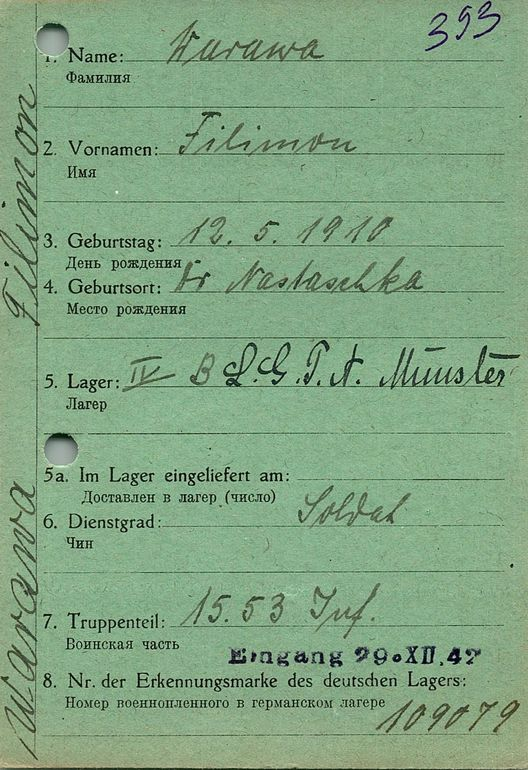 393
1. Name: Warawa
Фамилия
2. Vornamen: Filimon
Имя
3. Geburtstag: 12. 5. 1910
День рождения
4. Geburtsort: Nastaschka
Место рождения
5. Lager: IV B L.G.P.A. Münster
Лагер
5a. Im Lager eingeliefert am:
Доставлен в лагер (число)
6. Dienstgrad: Soldat
Чин
7. Truppenteil: 15.53 Inf.
Воинская часть
Eingang 29.XII.42
8. Nr. der Erkennungsmarke des deutschen Lagers:
Номер военнопленного в германском лагере
109079
Warawa Filimon